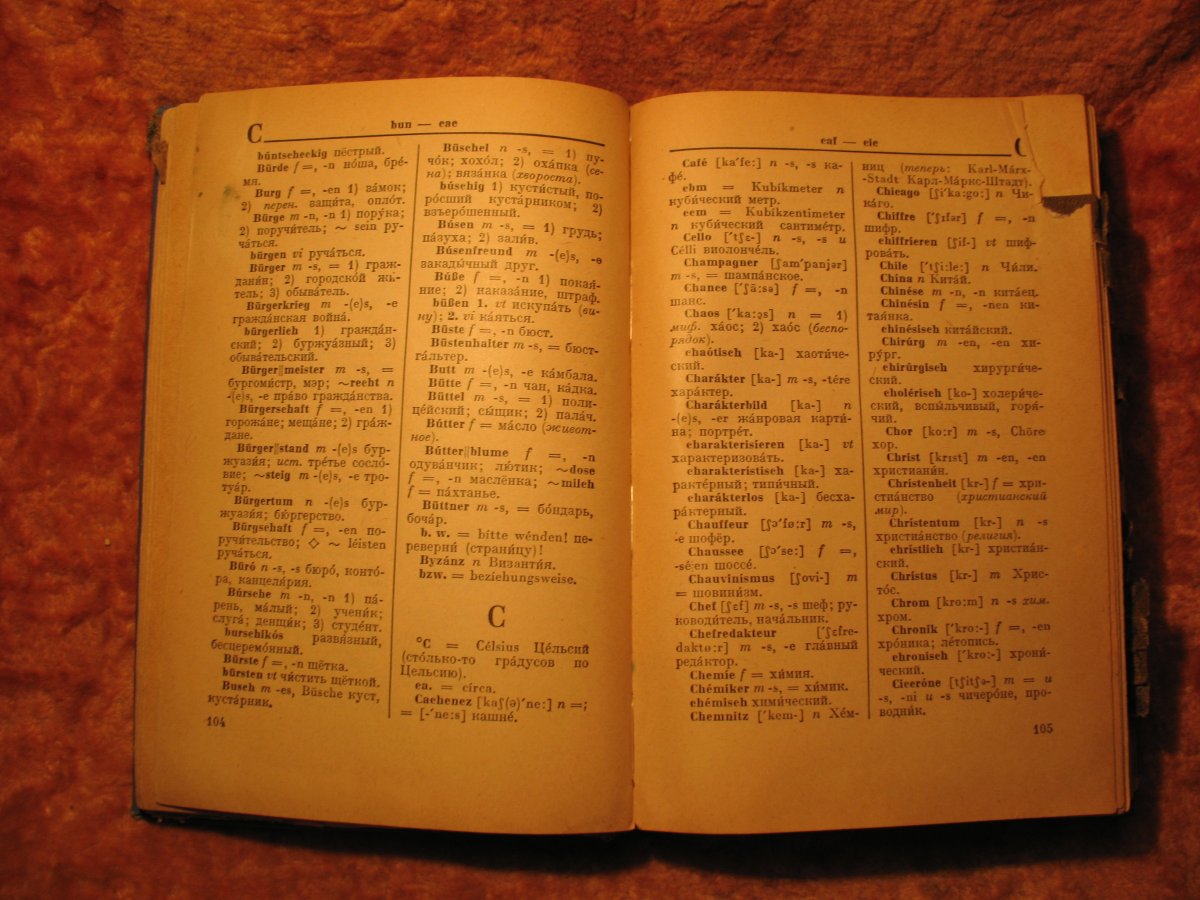 C
bun — cae
búntscheckig пёстрый.
Bürde f =, -n но́ша, бре́-
мя.
Burg f =, -en 1) за́мок;
2) перен. защи́та, опло́т.
Bürge m -n, -n 1) пору́ка;
2) поручи́тель; ~ sein ру-
ча́ться.
bürgen vi руча́ться.
Bürger m -s, = 1) граж-
дани́н; 2) городско́й жи́-
тель; 3) обыва́тель.
Bürgerkrieg m -(e)s, -e
гражда́нская война́.
bürgerlich 1) гражда́н-
ский; 2) буржуа́зный; 3)
обыва́тельский.
Bürger||meister m -s, =
бургоми́стр, мэр; ~recht n
-(e)s, -e пра́во гражда́нства.
Bürgerschaft f =, -en 1)
горожа́не; меща́не; 2) гра́ж-
дане.
Bürger||stand m -(e)s бур-
жуази́я; ист. тре́тье сосло́-
вие; ~steig m -(e)s, -e тро-
туа́р.
Bürgertum n -(e)s бур-
жуази́я; бю́ргерство.
Bürgschaft f =, -en по-
ручи́тельство; ◇ ~ léisten
руча́ться.
Büró n -s, -s бюро́, конто́-
ра, канцеля́рия.
Búrsche m -n, -n 1) па́-
рень, ма́лый; 2) учени́к;
слуга́; денщи́к; 3) студе́нт.
burschikós развя́зный,
бесцеремо́нный.
Bürste f =, -n щётка.
bürsten vt чи́стить щёткой.
Busch m -es, Büsche куст,
куста́рник.
104
Büschel n -s, = 1) пу-
чо́к; хохо́л; 2) оха́пка (се́-
на); вяза́нка (хво́роста).
búschig 1) кусти́стый, по-
ро́сший куста́рником; 2)
взъеро́шенный.
Búsen m -s, = 1) грудь;
па́зуха; 2) зали́в.
Búsenfreund m -(e)s, -e
закады́чный друг.
Búße f =, -n 1) покая́-
ние; 2) наказа́ние, штраф.
büßen 1. vt искупа́ть (ви-
ну́); 2. vi ка́яться.
Büste f =, -n бюст.
Büstenhalter m -s, = бюст-
га́льтер.
Butt m -(e)s, -e ка́мбала.
Bütte f =, -n чан, ка́дка.
Büttel m -s, = 1) поли-
це́йский; сы́щик; 2) пала́ч.
Bútter f = ма́сло (живот-
ное).
Bútter||blume f =, -n
одува́нчик; лю́тик; ~dose
f =, -n маслёнка; ~milch
f = па́хтанье.
Büttner m -s, = бо́ндарь,
боча́р.
b. w. = bitte wénden! пе-
реверни́ (страни́цу)!
Byzánz n Византи́я.
bzw. = beziehungsweise.
C
°C = Célsius Це́льсий
(сто́лько-то гра́дусов по
Цельсию).
ca. = circa.
Cachenez [kaʃ(ə)ˈne:] n =;
= [-ˈne:s] кашне́.
caf — cic
C
Café [kaˈfe:] n -s, -s ка-
фе́.
cbm = Kubíkmeter n
куби́ческий метр.
ccm = Kubíkzentimeter
n куби́ческий сантиме́тр.
Cello [ˈtʃɛ-] n -s, -s u
Célli виолонче́ль.
Champagner [ʃamˈpanjər]
m -s, = шампа́нское.
Chance [ˈʃã:sə] f =, -n
шанс.
Chaos [ˈka:ɔs] n = 1)
миф. ха́ос; 2) хао́с (беспо-
рядок).
chaótisch [ka-] хаоти́че-
ский.
Charákter [ka-] m -s, -tére
хара́ктер.
Charákterbild [ka-] n
-(e)s, -er жа́нровая карти́-
на; портре́т.
charakterisíeren [ka-] vt
характеризова́ть.
charakterístisch [ka-] ха-
ракте́рный; типи́чный.
charákterlos [ka-] бесха-
ра́ктерный.
Chauffeur [ʃəˈfø:r] m -s,
-e шофёр.
Chaussee [ʃɔˈse:] f =,
-sé:en шоссе́.
Chauvinismus [ʃovi-] m
= шовини́зм.
Chef [ʃɛf] m -s, -s шеф; ру-
ководи́тель, нача́льник.
Chefredakteur [ˈʃɛfre-
daktø:r] m -s, -e гла́вный
реда́ктор.
Chemíe f = хи́мия.
Chémiker m -s, = хи́мик.
chémisch хими́ческий.
Chemnitz [ˈkem-] n Хе́м-
ниц (теперь: Karl-Márx-
-Stadt Карл-Ма́ркс-Штадт).
Chicago [ʃiˈka:go:] n Чи-
ка́го.
Chiffre [ˈʃɪfər] f =, -n
шифр.
chiffrieren [ʃif-] vt шиф-
рова́ть.
Chile [ˈtʃi:le:] n Чи́ли.
China n Кита́й.
Chinése m -n, -n кита́ец.
Chinésin f =, -nen ки-
тая́нка.
chinésisch кита́йский.
Chirúrg m -en, -en хи-
ру́рг.
chirúrgisch хирурги́че-
ский.
cholérisch [ko-] холери́че-
ский, вспы́льчивый, горя́-
чий.
Chor [ko:r] m -s, Chöre
хор.
Christ [krɪst] m -en, -en
христиани́н.
Christenheit [kr-] f = хри-
стиа́нство (христианский
мир).
Christentum [kr-] n -s
христиа́нство (религия).
christlich [kr-] христиа́н-
ский.
Christus [kr-] m Хрис-
то́с.
Chrom [kro:m] n -s хим.
хром.
Chronik [ˈkro:-] f =, -en
хро́ника; ле́топись.
chronisch [ˈkro:-] хрони́-
ческий.
Ciceróne [tʃitʃə-] m = u
-s, -ni u -s чичеро́не, про-
водни́к.
105